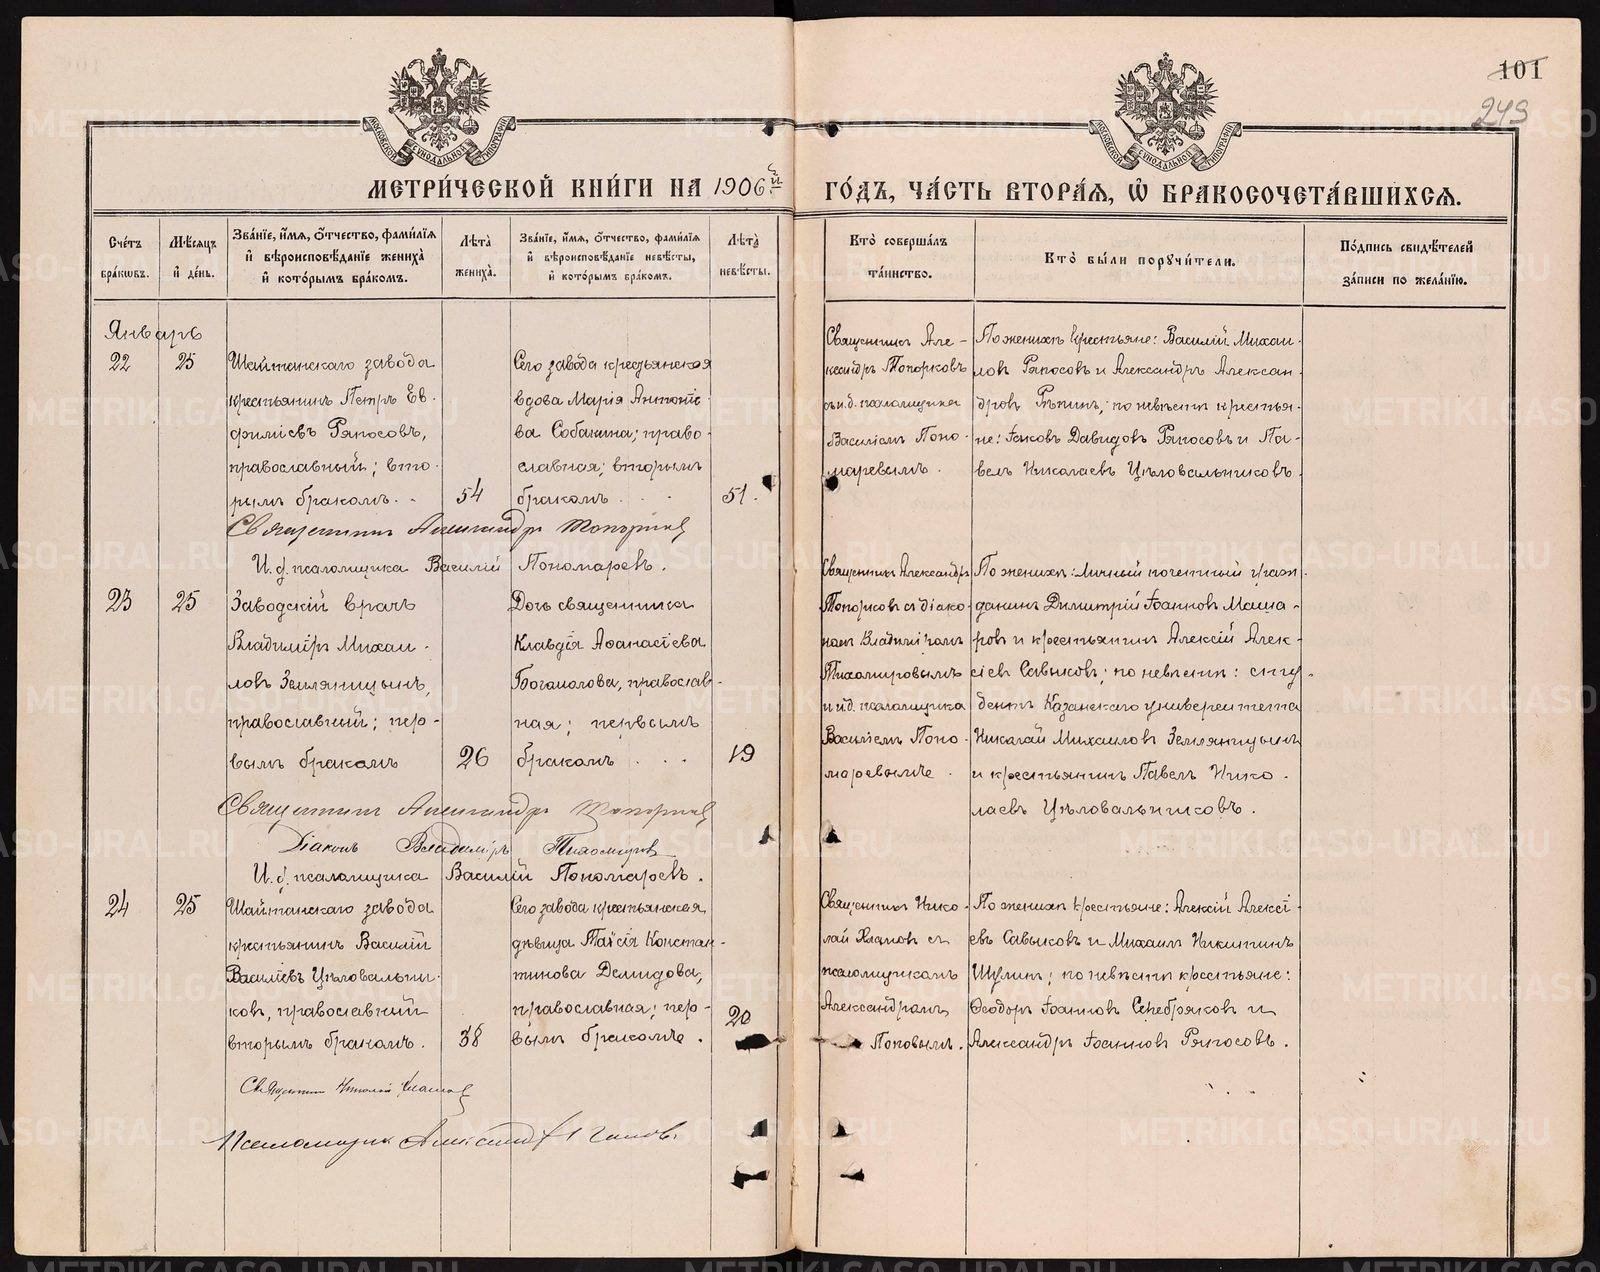 101
249
МОСКОВСКОЙ СУНОДАЛЬНОЙ ТИПОГРАФIИ
МОСКОВСКОЙ СУНОДАЛЬНОЙ ТИПОГРАФIИ
МЕТРИ́ЧЕСКОЙ КНИ́ГИ НА 1906й ГО́ДЪ, ЧА́СТЬ ВТОРА́Я, Ѿ БРАКОСОЧЕТА́ВШИХСЯ.
Сче́тъ бра́ковъ.
Мѣ́сяцъ и де́нь.
Зва́нїе, и́мя, о́тчество, фами́лїя и вѣроисповѣ́данїе жениха̀ и кото́рымъ бра́комъ.
Лѣ́та жениха̀.
Зва́нїе, и́мя, о́тчество, фами́лїя и вѣроисповѣ́данїе невѣ́сты, и кото́рымъ бра́комъ.
Лѣ́та невѣ́сты.
Кто̀ соверша́лъ та́инство.
Кто̀ бы́ли поручи́тели.
По́дпись свидѣ́телей за́писи по жела́нїю.
Январь
22
25
Шайтанскаго завода
крестьянинъ Петръ Ев-
фимiевъ Ряпосовъ,
православный; вто-
рымъ бракомъ. .
54
Сего завода крестьянская
вдова Марiя Антонiе-
ва Собакина; право-
славная; вторымъ
бракомъ . . .
51.
Священникъ Але-
ксандръ Топорковъ
съ и.д. псаломщика
Василiемъ Поно-
маревымъ.
По женихѣ крестьяне: Василiй Михаи-
ловъ Ряпосовъ и Александръ Алексан-
дровъ Рѣпинъ; по невѣстѣ крестья-
не: Iаковъ Давидовъ Ряпосовъ и Па-
велъ Николаевъ Цѣловальниковъ.
Священникъ Александръ Топорковъ
И.д. псаломщика Василiй Пономаревъ.
23
25
Заводскiй врачъ
Владимiръ Михаи-
ловъ Земляницынъ,
православный; пер-
вымъ бракомъ
26
Дочь священника
Клавдiя Аѳанасiева
Богомолова, православ-
ная; первымъ
бракомъ . . .
19
Священникъ Александръ
Топорковъ съ дiако-
номъ Владимiромъ
Тихомировымъ
и и.д. псаломщика
Василiемъ Поно-
маревымъ.
По женихѣ: Личный почетный граж-
данинъ Димитрiй Iоанновъ Маша-
ровъ и крестьянинъ Алексiй Алек-
сiевъ Савыковъ; по невѣстѣ: сту-
дентъ Казанскаго университета
Николай Михаиловъ Земляницынъ
и крестьянинъ Павелъ Нико-
лаевъ Цѣловальниковъ.
Священникъ Александръ Топорковъ
Дiаконъ Владимiръ Тихомировъ
И.д. псаломщика Василiй Пономаревъ.
24
25
Шайтанскаго завода
крестьянинъ Василiй
Василiевъ Цѣловальни-
ковъ, православный
вторымъ бракомъ.
38
Сего завода крестьянская
дѣвица Таисiя Констан-
тинова Демидова,
православная; пер-
вымъ бракомъ.
20
Священникъ Нико-
лай Хлыновъ съ
псаломщикомъ
Александромъ
Поповымъ.
По женихѣ крестьяне: Алексiй Алексi-
евъ Савыковъ и Михаилъ Никитинъ
Шулинъ; по невѣстѣ крестьяне:
Ѳеодоръ Iоанновъ Серебряковъ и
Александръ Iоанновъ Ряпосовъ.
Священникъ Николай
Псаломщикъ Александръ
METRIKI.GASO-URAL.RU